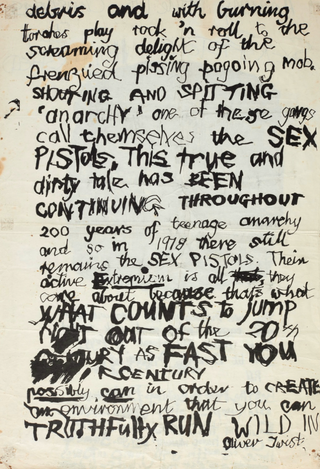 debris and with burning
torches play rock 'n roll to the
screaming delight of the
frenzied pissing pogoing mob.
SHOUTING AND SPITTING
'anarchy' one of these gangs
call themselves the SEX
PISTOLS. This true and
dirty tale has BEEN
CONTINUING THROUGHOUT
200 years of teenage anarchy
and so in 1978 there still
remains the SEX PISTOLS. Their
active Extremism is all they
care about because thats what
WHAT COUNTS to JUMP
OUT OF the 20th
CENTURY AS FAST YOU
CENTURY
possibly can in order to CREATE
an environment that you can
TRUTHfully RUN WILD IN
Oliver Twist